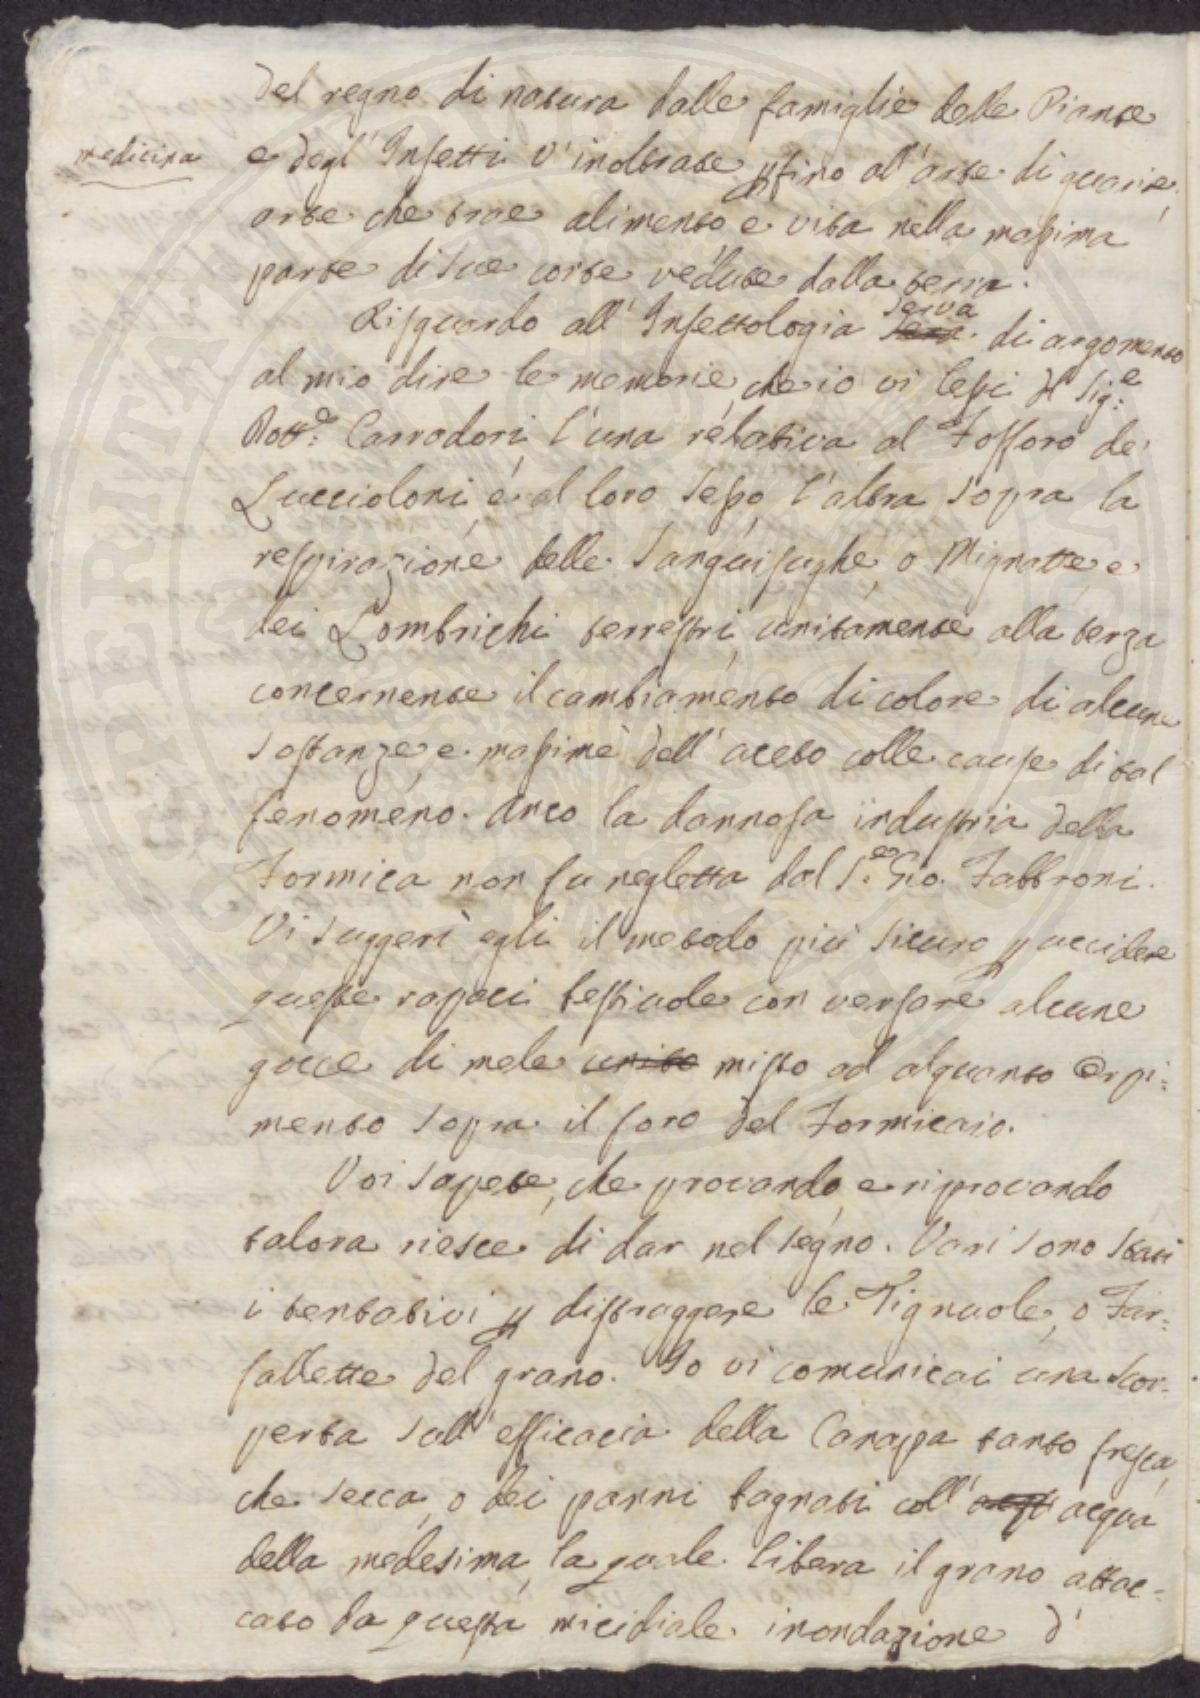 del regno di natura dalle famiglie delle Piante
medicina
e degl' Insetti v'inoltrate p fino all'arte di guarire,
arte che trae alimento e vita nella massima
parte di sue corte vedute dalla terra.
Risguardo all' Insettologia sera serva di argomento
al mio dire le memorie, che io vi lessi del Sig.e
Dott.e Carradori, l'una relativa al Fosforo de'
Luccioloni, e al loro sesso, l'altra sopra la
respirazione delle Sanguisughe, o Mignatte e
dei Lombrichi terrestri, unitamente alla terza
concernente il cambiamento di colore di alcune
sostanze, e massime dell' aceto colle cause di tal
fenomeno. Anco la dannosa industria della
Formica non fu negletta dal S.e Gio. Fabbroni.
Vi suggerì egli il metodo più sicuro p uccidere
queste rapaci bestiuole con versare alcune
gocce di mele unito misto ad alquanto Orpi:
mento sopra il foro del Formicaio.
Voi sapete, che provando, e riprovando
talora riesce di dar nel segno. Vari sono stati
i tentativi p distruggere le Tignuole, o Far:
fallette del grano. Io vi comunicai una scor:
perta sull'efficacia della Canapa tanto fresca,
che secca, o dei panni bagnati coll' acqua
della medesima, la quale libera il grano attac:
cato da questa micidiale inondazione d'